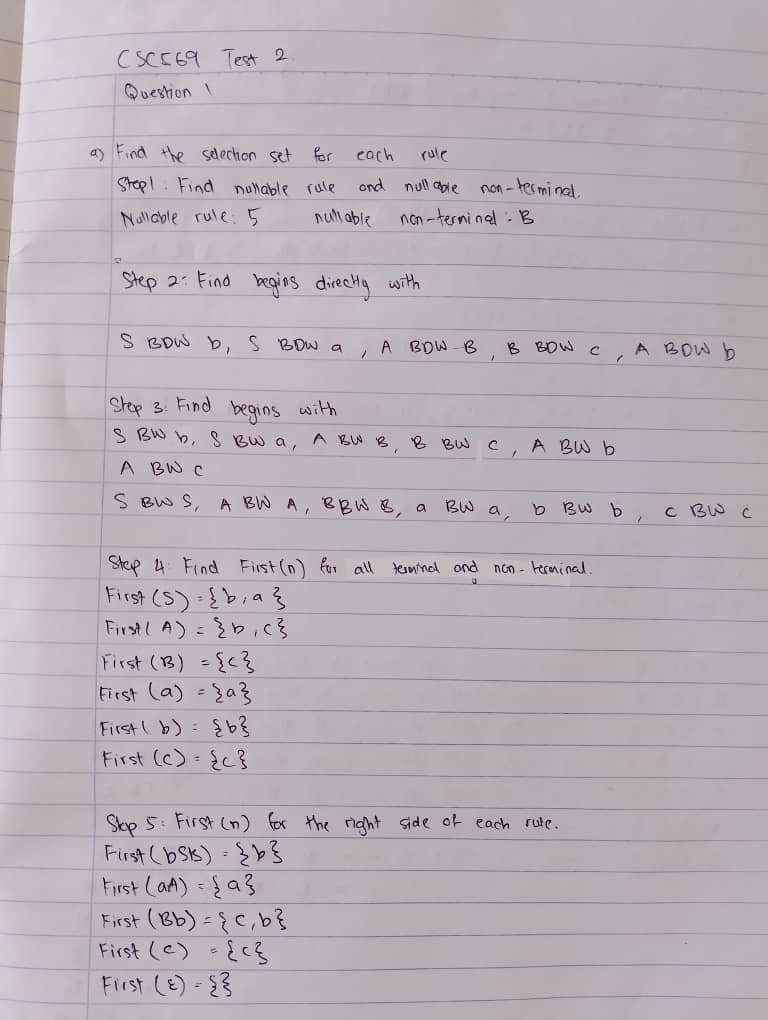 CSC569 Test 2.
Question 1
a) Find the selection set for each rule
Step 1: Find nullable rule and nullable non-terminal.
Nullable rule: 5 nullable non-terminal: B
Step 2: Find begins directly with
S BDW b, S BDW a, A BDW B, B BDW c, A BDW b
Step 3: Find begins with
S BW b, S BW a, A BW B, B BW c, A BW b
A BW c
S BW S, A BW A, B BW B, a BW a, b BW b, c BW c
Step 4: Find First(n) for all terminal and non-terminal.
First (S) = {b, a}
First (A) = {b, c}
First (B) = {c}
First (a) = {a}
First (b) = {b}
First (c) = {c}
Step 5: First (n) for the right side of each rule.
First (bSB) = {b}
First (aA) = {a}
First (Bb) = {c, b}
First (c) = {c}
First (ε) = {}